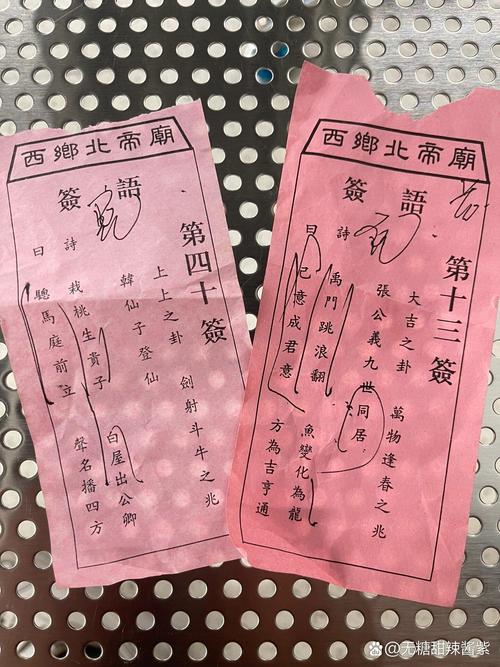 西鄉北帝廟
簽語
第四十簽
上上之卦 劍射斗牛之兆
韓仙子登仙
詩曰
栽桃生貴子 白屋出公卿
聰馬庭前立 聲名播四方
西鄉北帝廟
簽語
第十三簽
大吉之卦 萬物逢春之兆
張公義九世同居
詩曰
禹門跳浪翻 魚變化為龍
己意成君意 方為吉亨通
@无糖甜辣酱紫